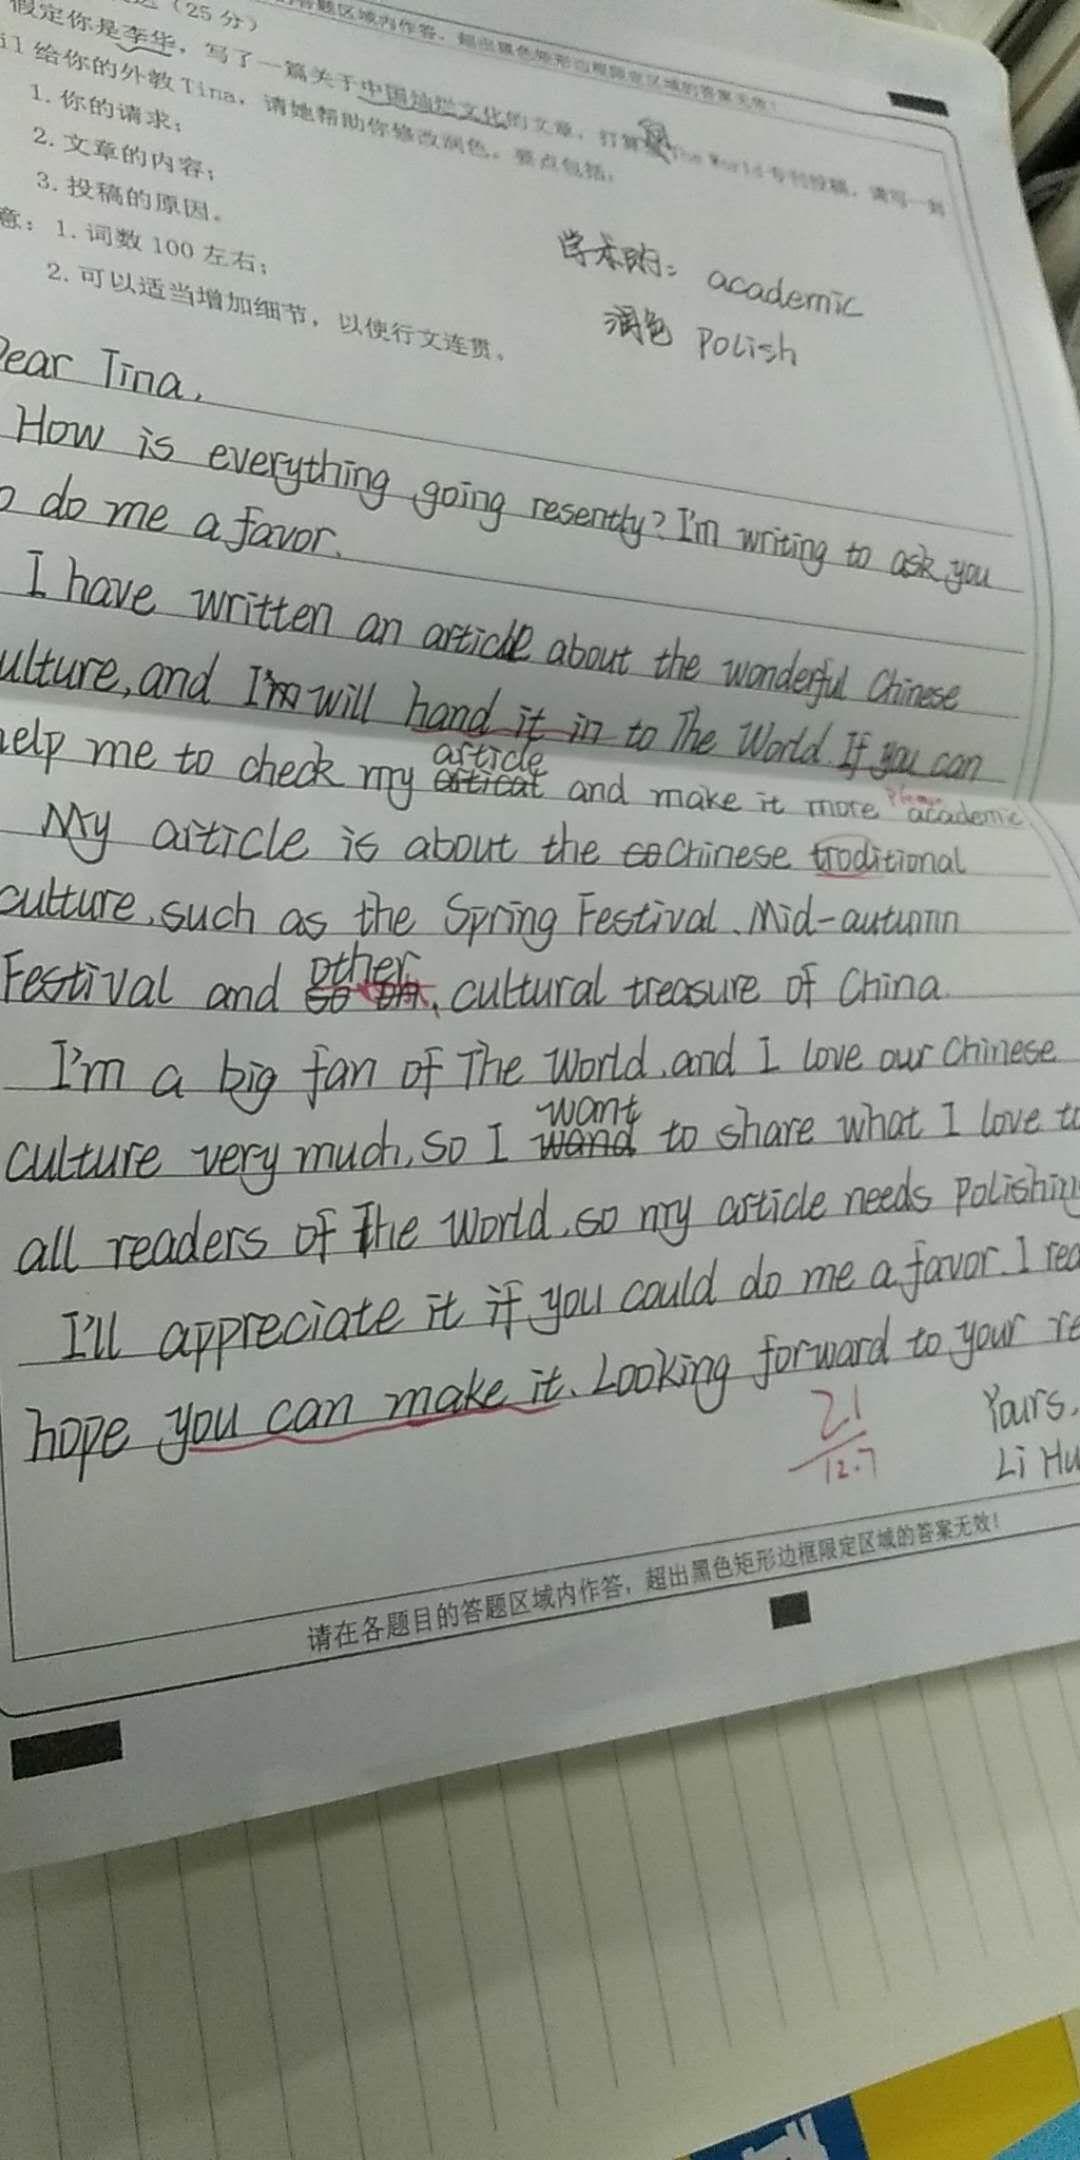 (25分)
答题区域内作答,超出黑色矩形边框限定区域的答案无效!
假定你是李华,写了一篇关于中国灿烂文化的文章,打算 The World 专刊投稿,请写一封
il 给你的外教 Tina,请她帮助你修改润色。要点包括:
1. 你的请求;
2. 文章的内容;
3. 投稿的原因。
意:1. 词数 100 左右;
2. 可以适当增加细节,以使行文连贯。
学术的: academic
润色 Polish
Dear Tina,
How is everything going resently? I'm writing to ask you
o do me a favor.
I have written an article about the wonderful Chinese
ulture, and I'm will hand it in to The World. If you can
article
help me to check my aiticat and make it more academic.
My article is about the co Chinese troditional
culture, such as the Spring Festival, Mid-autumn
other
Festival and so on, cultural treasure of China.
I'm a big fan of The World, and I love our Chinese
want
culture very much, so I wand to share what I love to
all readers of The World, so my article needs polishing
I'll appreciate it if you could do me a favor. I rea
hope you can make it. Looking forward to your re
21
12.7
Yours,
Li Hu
请在各题目的答题区域内作答,超出黑色矩形边框限定区域的答案无效!